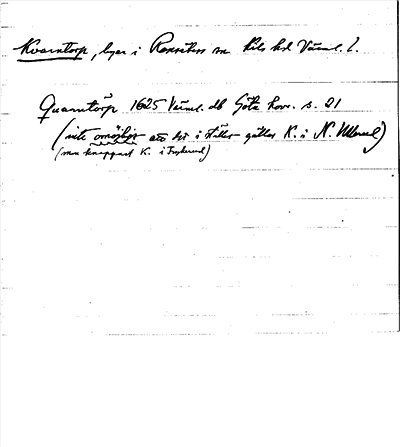 Kvarntorp, byar i Ransäters sn Kils hd Värml. l.
Quarntörp 1625 Värml. db Göta hovr. s. 21
(inte omöjligt att det i stället gäller K. i N. Ullerud)
(men knappast K. i Fryksund)